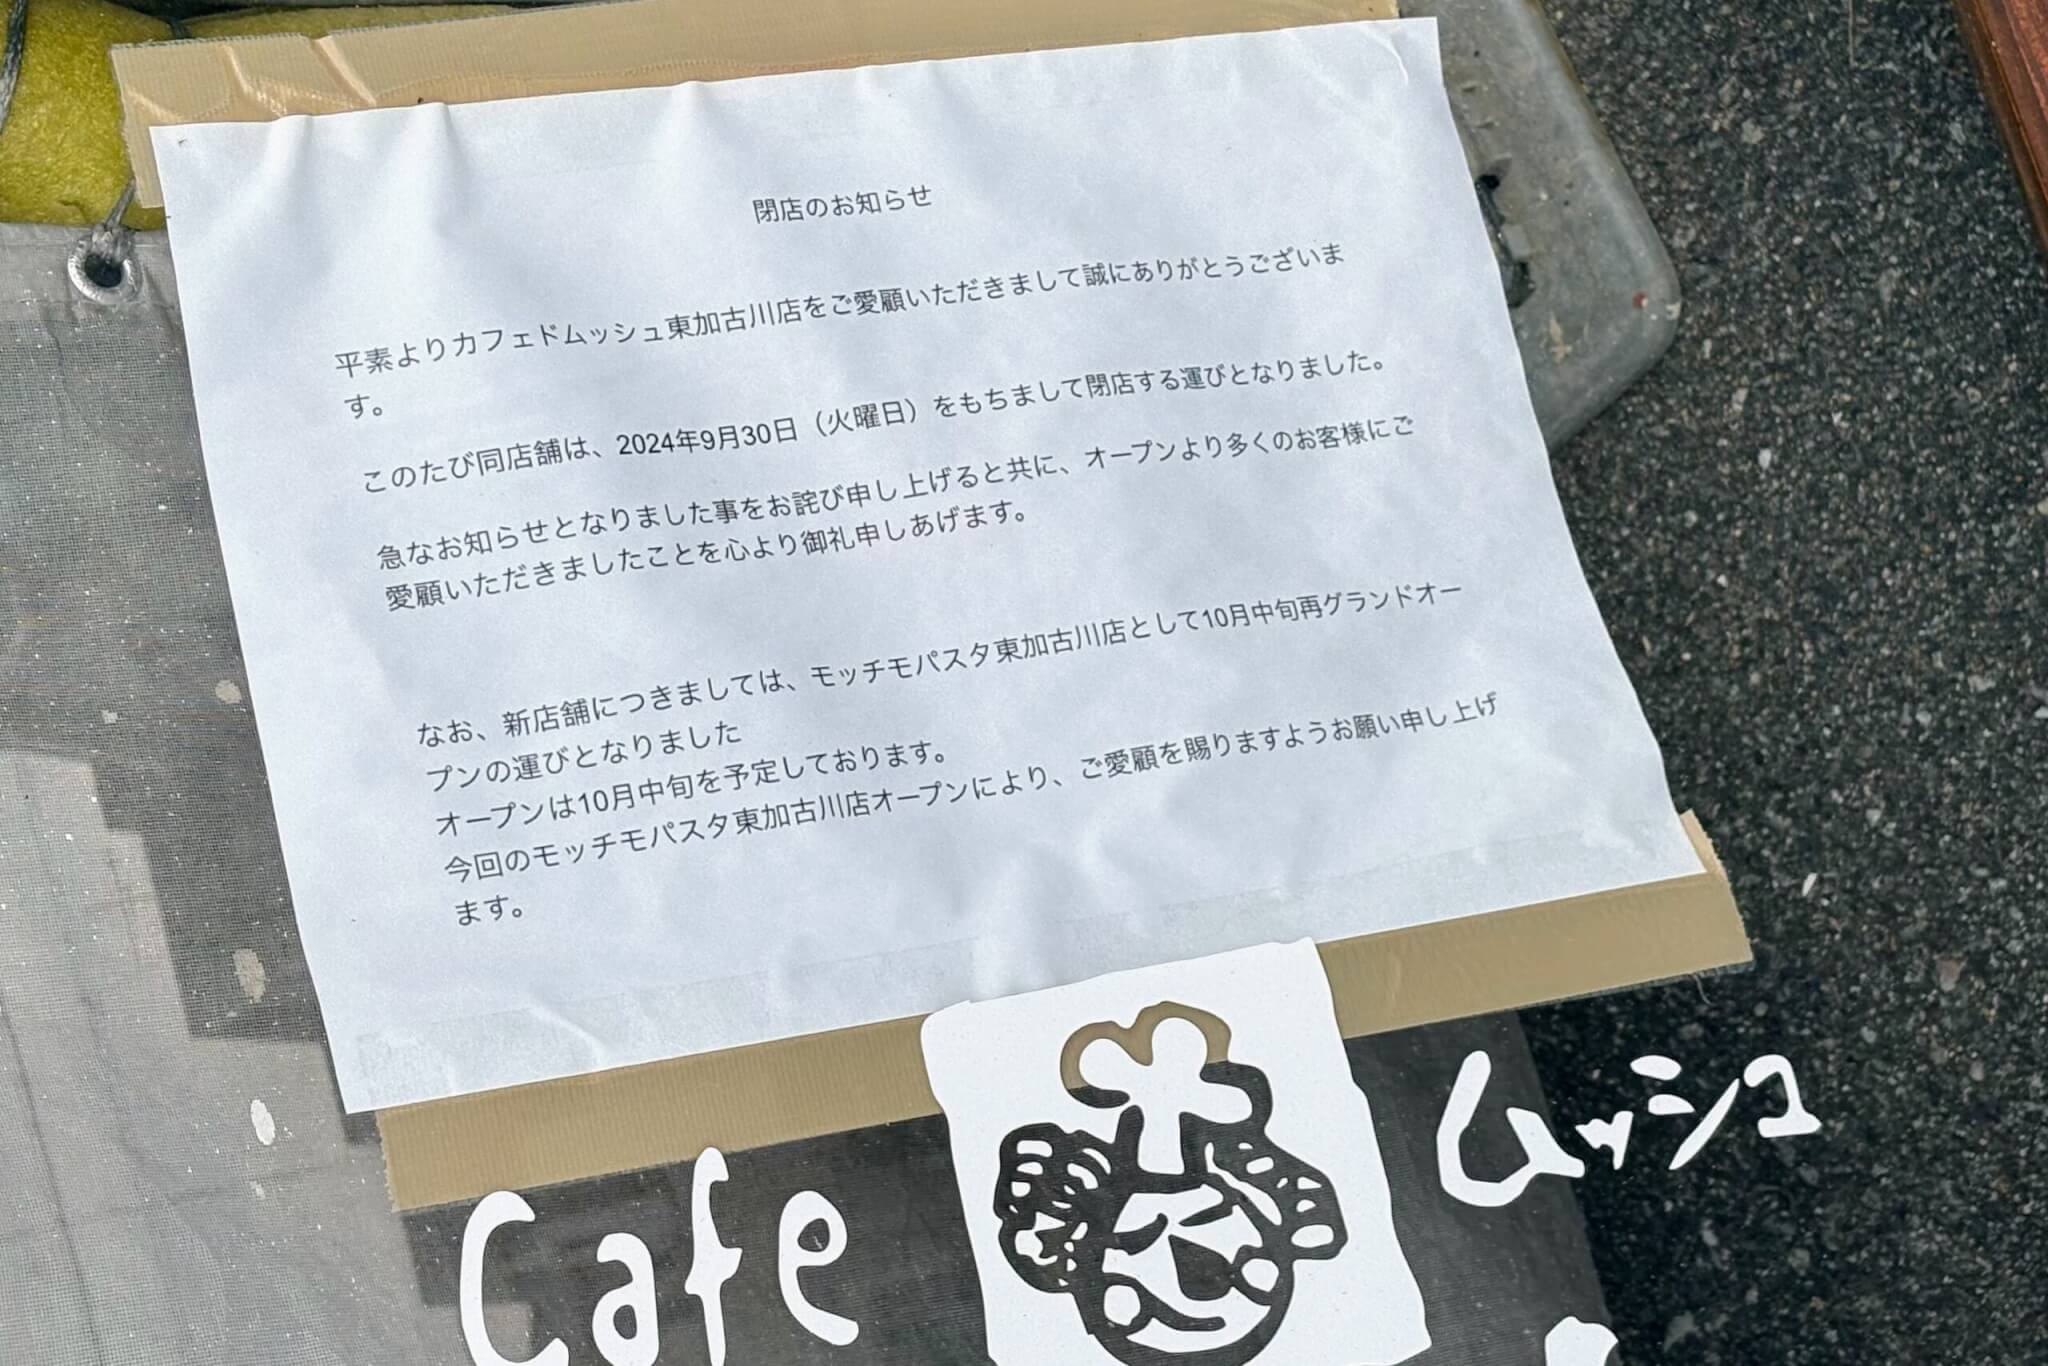 閉店のお知らせ
平素よりカフェドムッシュ東加古川店をご愛顧いただきまして誠にありがとうございま
す。
このたび同店舗は、2024年9月30日（火曜日）をもちまして閉店する運びとなりました。
急なお知らせとなりました事をお詫び申し上げると共に、オープンより多くのお客様にご
愛顧いただきましたことを心より御礼申しあげます。
なお、新店舗につきましては、モッチモパスタ東加古川店として10月中旬再グランドオー
プンの運びとなりました
オープンは10月中旬を予定しております。
今回のモッチモパスタ東加古川店オープンにより、ご愛顧を賜りますようお願い申し上げ
ます。
Cafe ムッシュ